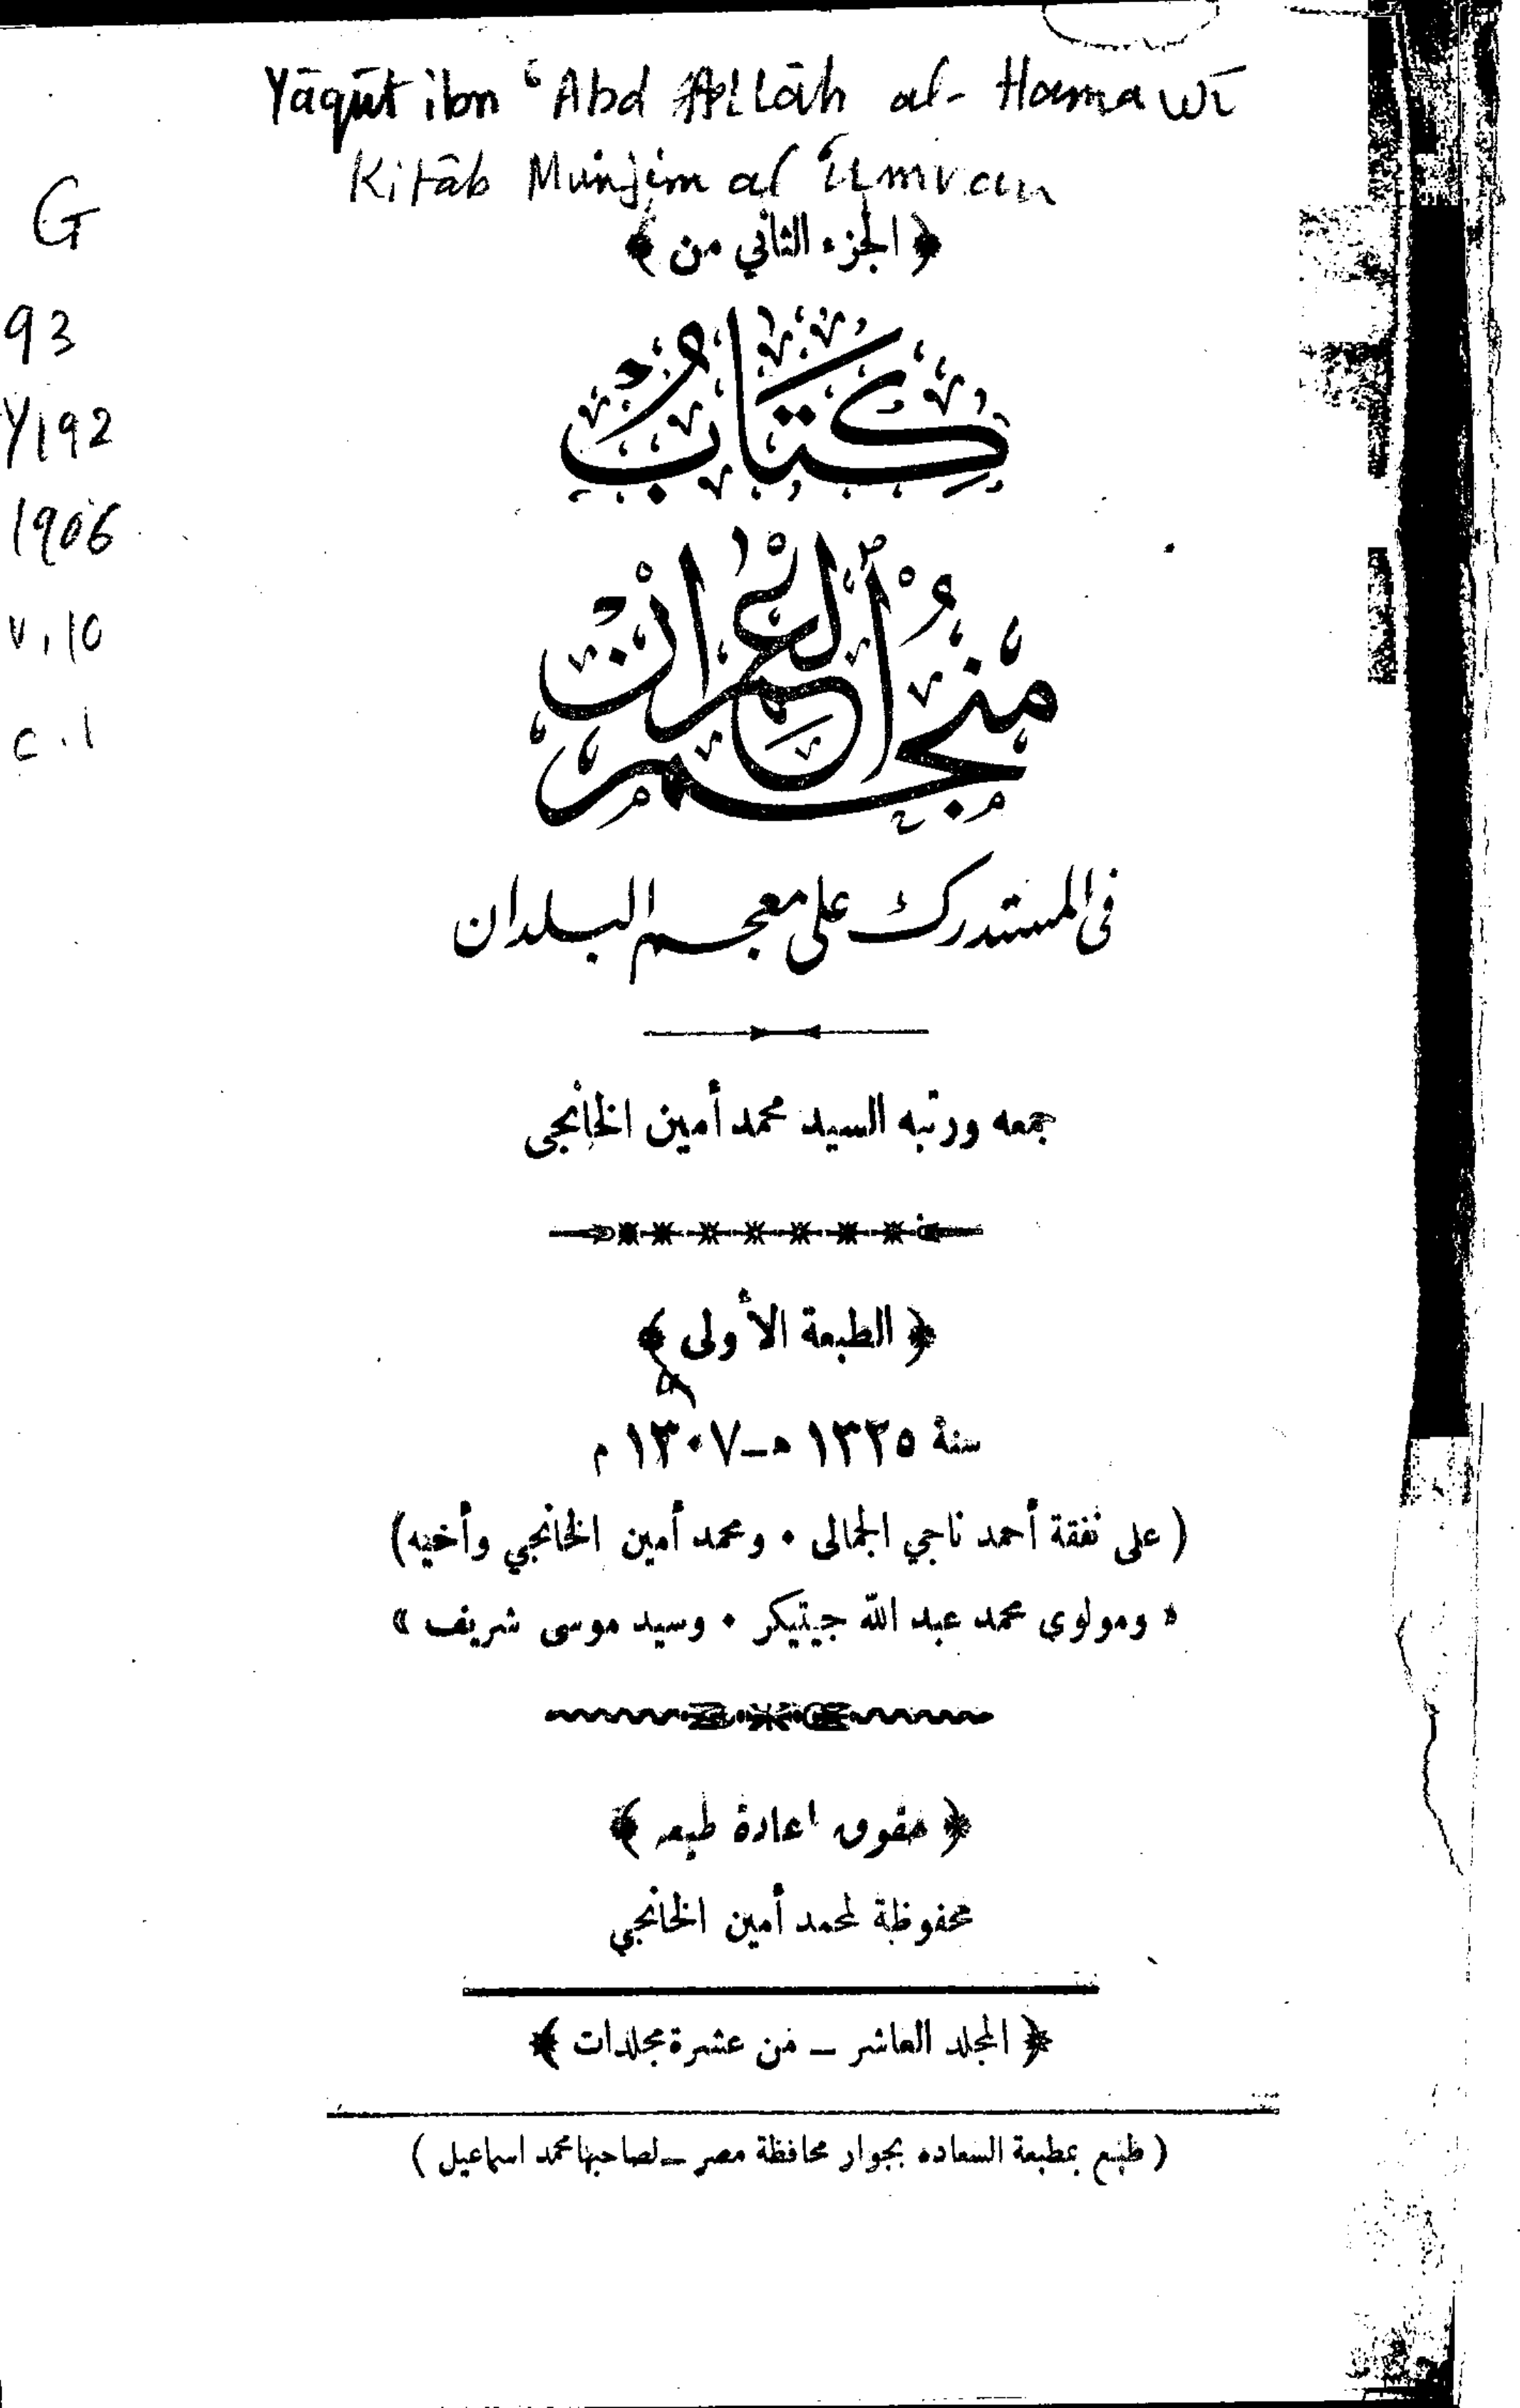 Yāqūt ibn ʿAbd Allāh al-Hamawī
Kitāb Munjim al ʿUmran
G
93
Y192
1906
v.10
c.1
﴿ الجزء الثاني من ﴾
كِتَابُ
مُنْجَمُ الْعُمْرَانْ
فى المستدرك على معجم البلدان
جمعه ورتبه السيد محمد أمين الخانجى
﴿ الطبعة الأولى ﴾
سنة ١٣٢٥ هـ ـ ١٣٠٧ م
( على نفقة أحمد ناجي الجمالى • ومحمد أمين الخانجي وأخيه )
« ومولوي محمد عبد الله جيتيكر • وسيد موسى شريف »
﴿ حقوق اعادة طبعه ﴾
محفوظة لمحمد أمين الخانجي
﴿ المجلد العاشر ـ من عشرة مجلدات ﴾
( طبع بمطبعة السعاده بجوار محافظة مصر ـ لصاحبها محمد اسماعيل )